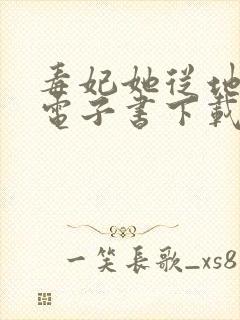 毒妃她從地
電子書下載
一笑長歌_xs8